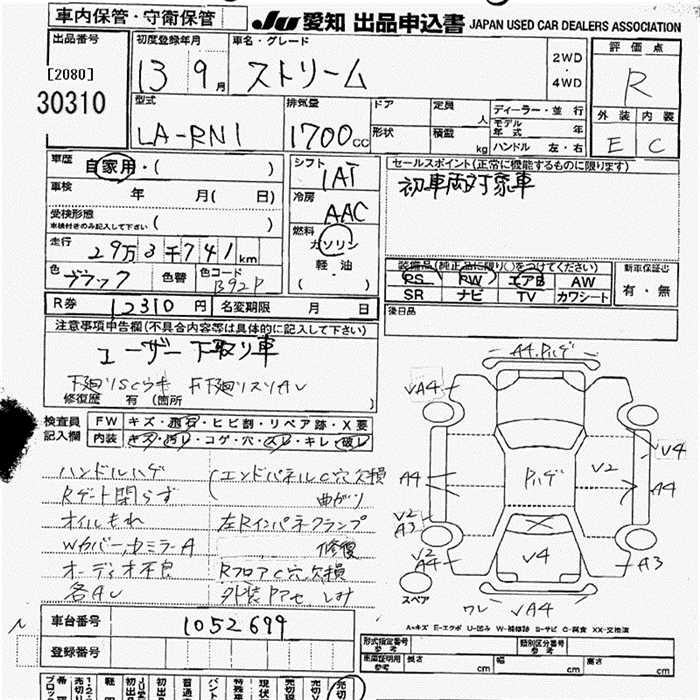 車内保管・守衛保管
JU 愛知 出品申込書 JAPAN USED CAR DEALERS ASSOCIATION
出品番号
[2080]
30310
初度登録年月
13 9月
車名・グレード
ストリーム
2WD
・
4WD
評価点
R
外装 内装
E C
型式
LA-RN1
排気量
1700cc
ドア
形状
定員 人
積載 kg
ディーラー・並行
モデル年式 年
ハンドル 左・右
車歴 自家用・( )
車検 年 月(日)
受検形態
車検付きのみ記入して下さい ( )
走行 29万3千741km
色 ブラック 色替 色コード B92P
シフト
IAT
冷房
AAC
燃料
ガソリン
軽・油
( ・ )
セールスポイント(正常に機能するものに限ります)
初車両対象車
装備品(純正品に限り○をつけてください)
PS PW エアB AW
SR ナビ TV カワシート
新車保証書
有・無
後日品
R券 12310円 名変期限 月 日
注意事項申告欄(不具合内容等は具体的に記入して下さい)
ユーザー下取り車
下廻りSCウキ F下廻スリAU
修復歴 有(箇所 )
検査員
記入欄
FW キズ・飛石・ヒビ割・リペア跡・X要
内装 キズ・汚レ・コゲ・穴・スレ・キレ・破レ
ハンドルハゲ
Rゲート閉らず
オイルもれ
Wカバー,カミラーA
オーディオ不良
各AU
エンドパネルC穴欠損
曲がり
左Rインパネクランプ
修復
RフロアC穴欠損
A4.Pハゲ
VA4
V4
A4
Pハゲ
V2
A4
V2
A3
V2
A4
V4
A3
スペア
ワレ VA4
A=キズ E=エクボ U=凹み W=補修跡 S=サビ C=腐食 XX=交換済
車台番号 1052699
登録番号
型式指定番号
参考
類別区分番号
参考
車庫証明用
参考
長さ cm
幅 cm
高さ cm